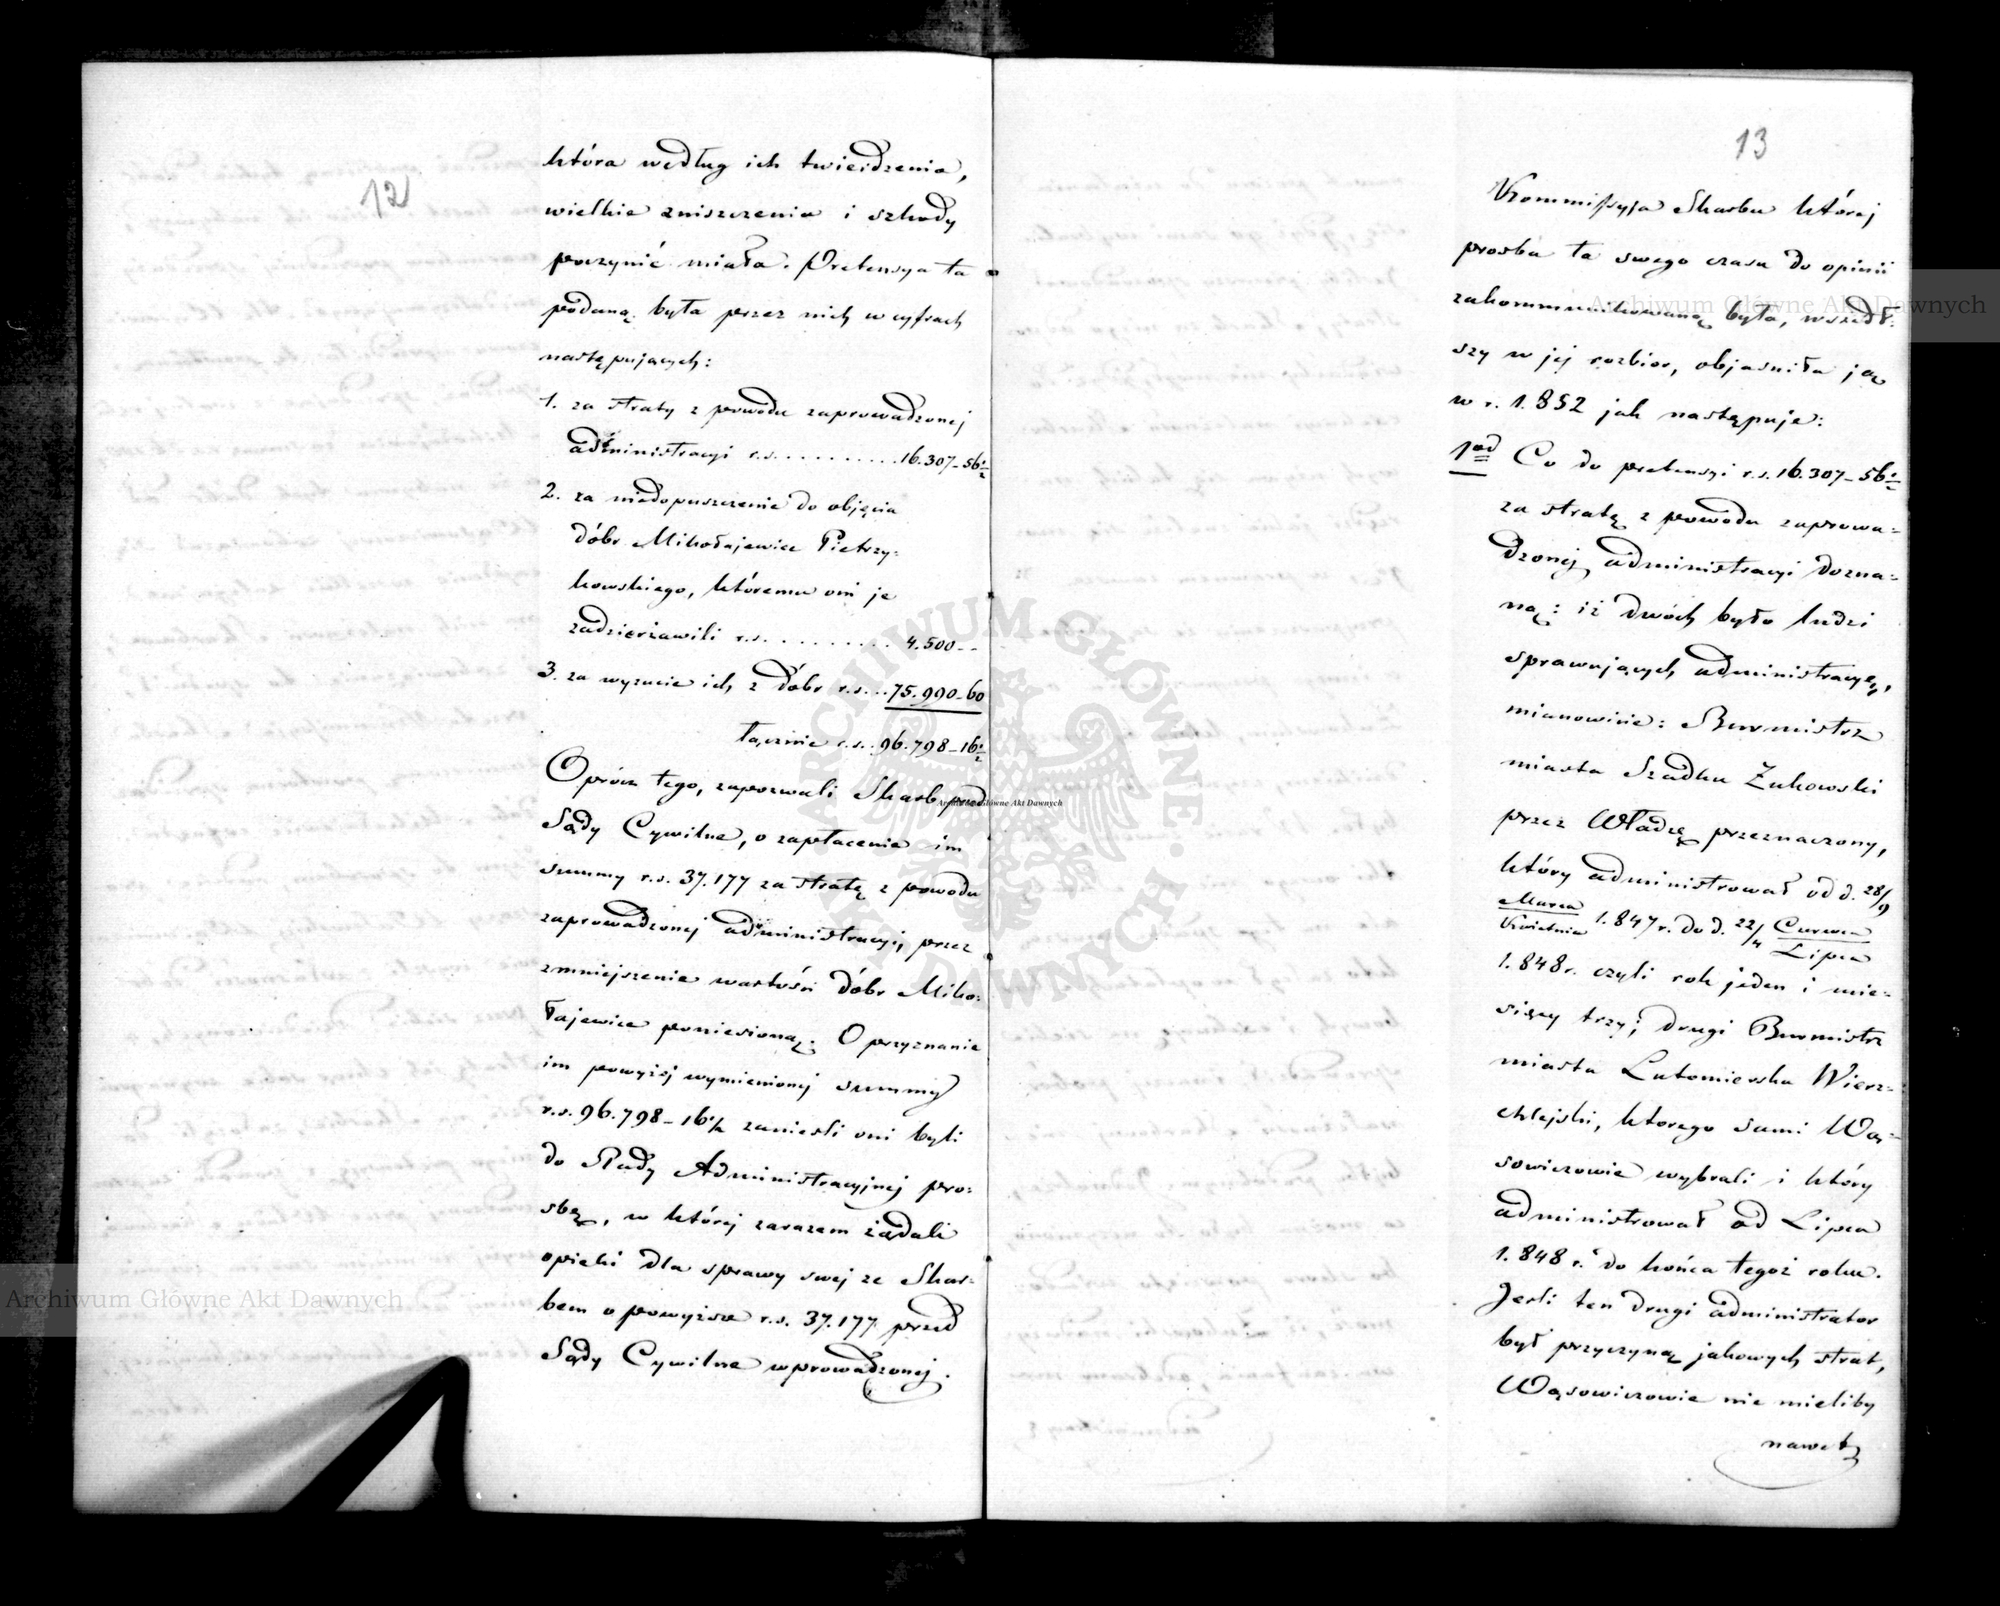 12
która według ich twierdzenia,
wielkie zniszczenia i szkody
poczynić miała. Pretensya ta
podaną była przez nich w cyfrach
następujących:
1. za straty z powodu zaprowadzonej
administracyi r.s. . . . . . . . . . . 16.307-56½
2. za niedopuszczenie do objęcia
dóbr Mikołajewice Pietrzy-
kowskiego, któremu oni je
zadzierżawili r.s. . . . . . . . . . . 4.500 - -
3. za wyzucie ich z dóbr r.s. . . 75.990-60
łącznie r.s. . 96.798-16½
Oprócz tego, zapozwali Skarb przed
Sądy Cywilne, o zapłacenie im
summy r.s. 37.177 za stratę z powodu
zaprowadzonej administracyi, przez
zmniejszenie wartości dóbr Miko-
łajewice poniesioną. O przyznanie
im powyżej wymienionej summy
r.s. 96.798-16½ zanieśli oni byli
do Rady Administracyjnej pro-
śbę, w której zarazem żądali
opieki dla sprawy swej ze Skar-
bem o powyższe r.s. 37.177 przed
Sądy Cywilne wprowadzonej.
13
Kommissyja Skarbu której
prośba ta swego czasu do opinii
zakommunikowaną była, wszedł-
szy w jej rozbior, objaśniła ją
w r. 1.852 jak następuje:
1od Co do pretensyi r.s. 16.307-56½
za stratę z powodu zaprowa-
dzonej administracyi dozna-
ną: iż dwóch było ludzi
sprawujących administracyę,
mianowicie: Burmistrz
miasta Szadku Żukowski
przez Władzę przeznaczony,
który administrował od d. 28/9
Marca
Kwietnia 1.847 r. do d. 22/4 Czerwca
Lipca
1.848 r. czyli rok jeden i mie-
sięcy trzy; drugi Burmistrz
miasta Lutomierska Wierz-
chlejski, którego sami Wą-
sowiczowie wybrali i który
administrował od Lipca
1.848 r. do końca tegoż roku.
Jeśli ten drugi administrator
był przyczyną jakowych strat,
Wąsowiczowie nie mieliby
nawet
Archiwum Główne Akt Dawnych
Archiwum Główne Akt Dawnych
Archiwum Główne Akt Dawnych
ARCHIWUM GŁÓWNE · AKT DAWNYCH ·